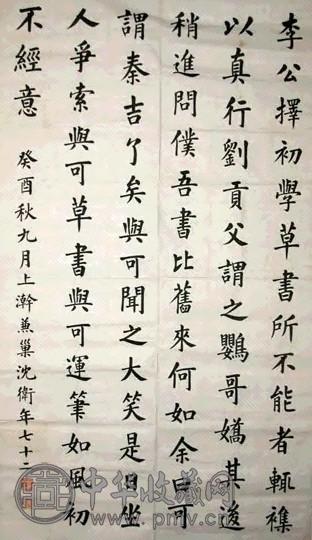 李公擇初學草書所不能者輒襍
以真行劉貢父謂之鸚哥嬌其後
稍進問僕吾書比舊來何如余曰可
謂秦吉了矣與可聞之大笑是日坐
人爭索與可草書與可運筆如風初
不經意
癸酉秋九月上澣兼巢沈衛年七十二
中华收藏网
www.pmv.cn